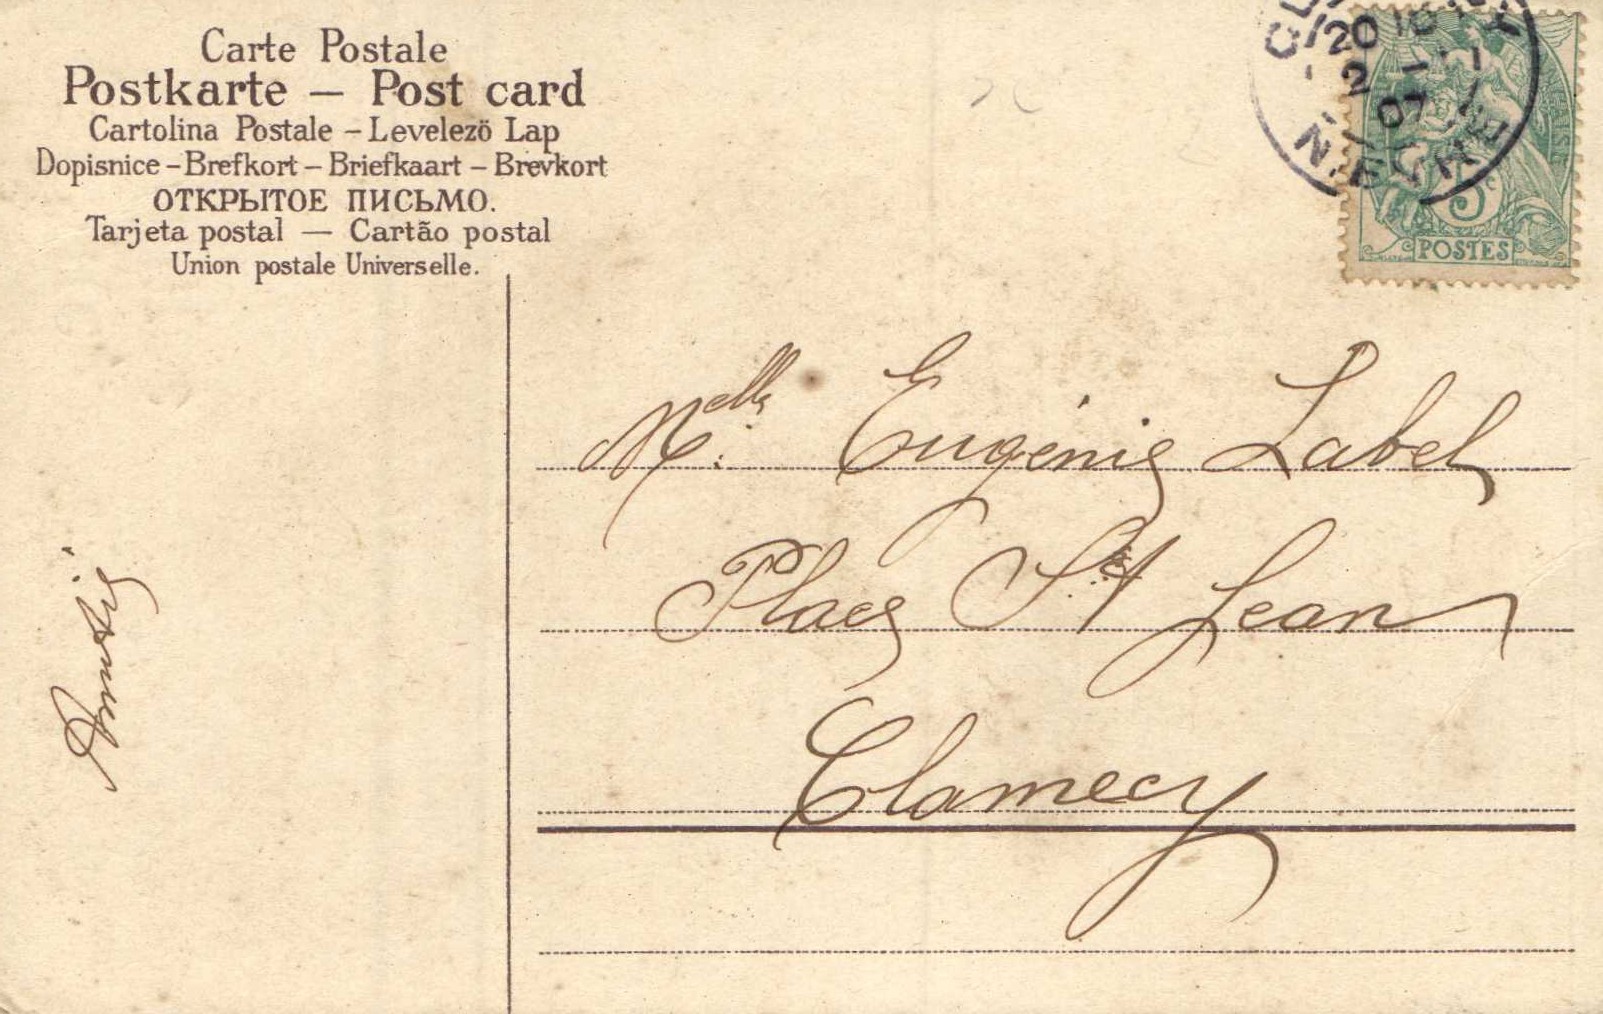 Carte Postale
Postkarte — Post card
Cartolina Postale – Levelezö Lap
Dopisnice – Brefkort – Briefkaart – Brevkort
ОТКРЫТОЕ ПИСЬМО.
Tarjeta postal — Cartão postal
Union postale Universelle.
20
2
07
NIÈVRE
5c
POSTES
Melle Eugénie Label
Place St Jean
Clamecy
Amitié